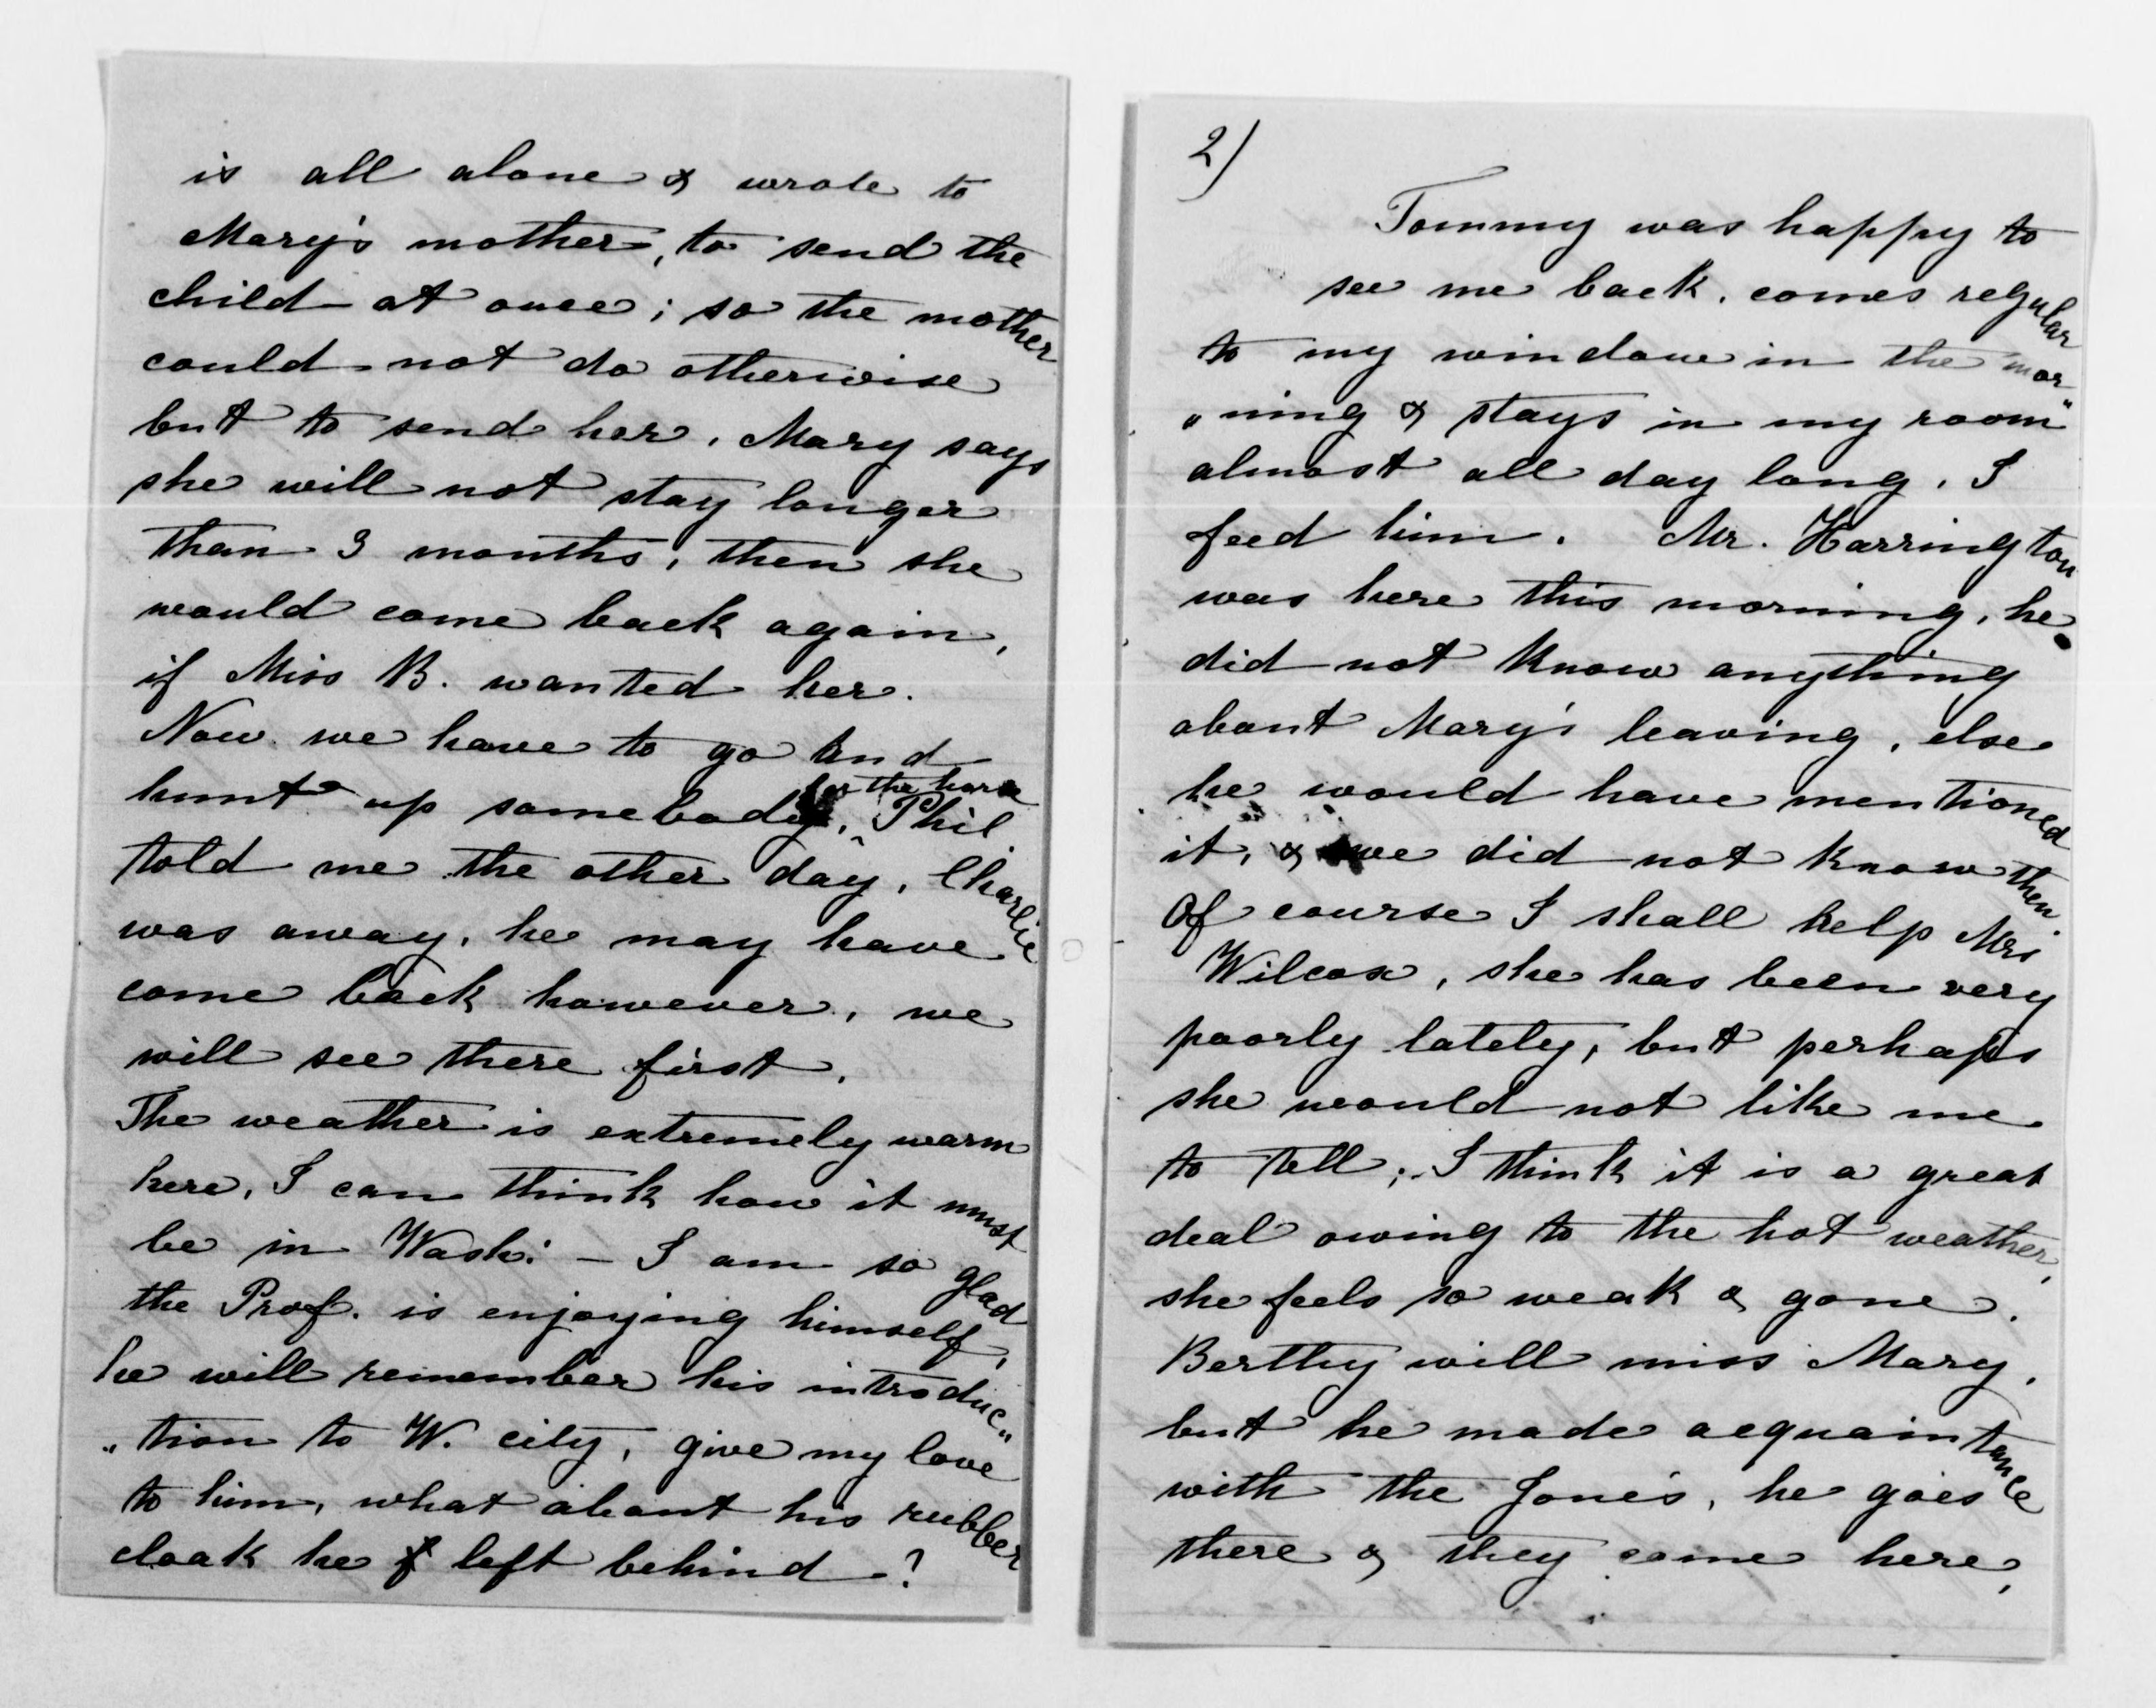 is all alone & wrote to
Mary's mother, to send the
child at once; so the mother
could not do otherwise
but to send her. Mary says
she will not stay longer
than 3 months, then she
would come back again,
if Miss B. wanted her.
Now we have to go and
for the horse
hunt up somebody, Phil
told me the other day, Charlie
was away, he may have
come back however, we
will see there first.
The weather is extremely warm
here, I can think how it must
be in Wash: – I am so glad
the Prof. is enjoying himself,
he will remember his introduc„
„tion to W. city, give my love
to him, what about his rubber
cloak he left behind?
2)
Tommy was happy to
see me back, comes regular
to my window in the mor„
„ning & stays in my room
almost all day long, I
feed him. Mr. Harrington
was here this morning, he
did not know anything
about Mary's leaving, else
he would have mentioned
it, & we did not know then
Of course I shall help Mrs
Wilcox, she has been very
poorly lately, but perhaps
she would not like me
to tell; I think it is a great
deal owing to the hot weather,
she feels so weak & gone.
Berthy will miss Mary,
but he made acquaintance
with the Jone's, he goes
there & they come here,